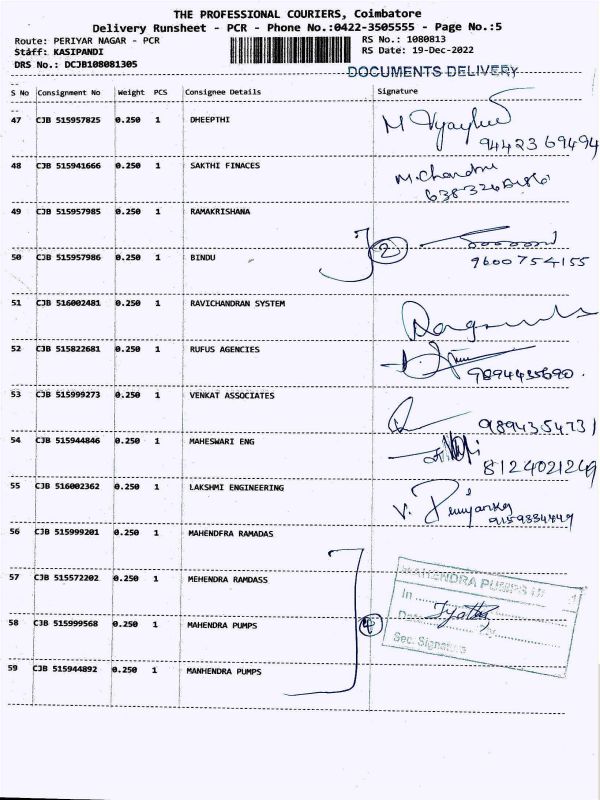 THE PROFESSIONAL COURIERS, Coimbatore
Delivery Runsheet - PCR - Phone No.:0422-3505555 - Page No.:5
Route: PERIYAR NAGAR - PCR RS No.: 1080813
Staff: KASIPANDI RS Date: 19-Dec-2022
DRS No.: DCJB108081305
DOCUMENTS DELIVERY
S No Consignment No Weight PCS Consignee Details Signature
47 CJB 515957825 0.250 1 DHEEPTHI
9442369494
48 CJB 515941666 0.250 1 SAKTHI FINACES M.Chandru
49 CJB 515957985 0.250 1 RAMAKRISHANA
50 CJB 515957986 0.250 1 BINDU 2
9600754155
51 CJB 516002481 0.250 1 RAVICHANDRAN SYSTEM
52 CJB 515822681 0.250 1 RUFUS AGENCIES
9894435690.
53 CJB 515999273 0.250 1 VENKAT ASSOCIATES
9894354731
54 CJB 515944846 0.250 1 MAHESWARI ENG
8124021249
55 CJB 516002362 0.250 1 LAKSHMI ENGINEERING V. Priyanka
9159884449
56 CJB 515999201 0.250 1 MAHENDFRA RAMADAS
57 CJB 515572202 0.250 1 MEHENDRA RAMDASS
58 CJB 515999568 0.250 1 MAHENDRA PUMPS 4
59 CJB 515944892 0.250 1 MANHENDRA PUMPS
MAHENDRA PUMPS
In
Date
Sec. Signature